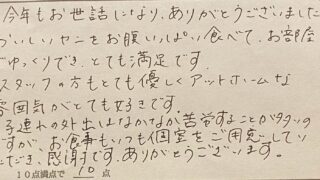 今年もお世話になり、ありがとうございました
おいしいカニをお腹いっぱい食べて、お部屋
でゆっくりでき、とても満足です。
スタッフの方もとても優しくアットホームな
雰囲気がとても好きです。
子連れの外出はなかなか苦労することが多いの
ですが、お食事もいつも個室をご用意してい
ただき、感謝です。ありがとうございます。
10点満点で 10 点